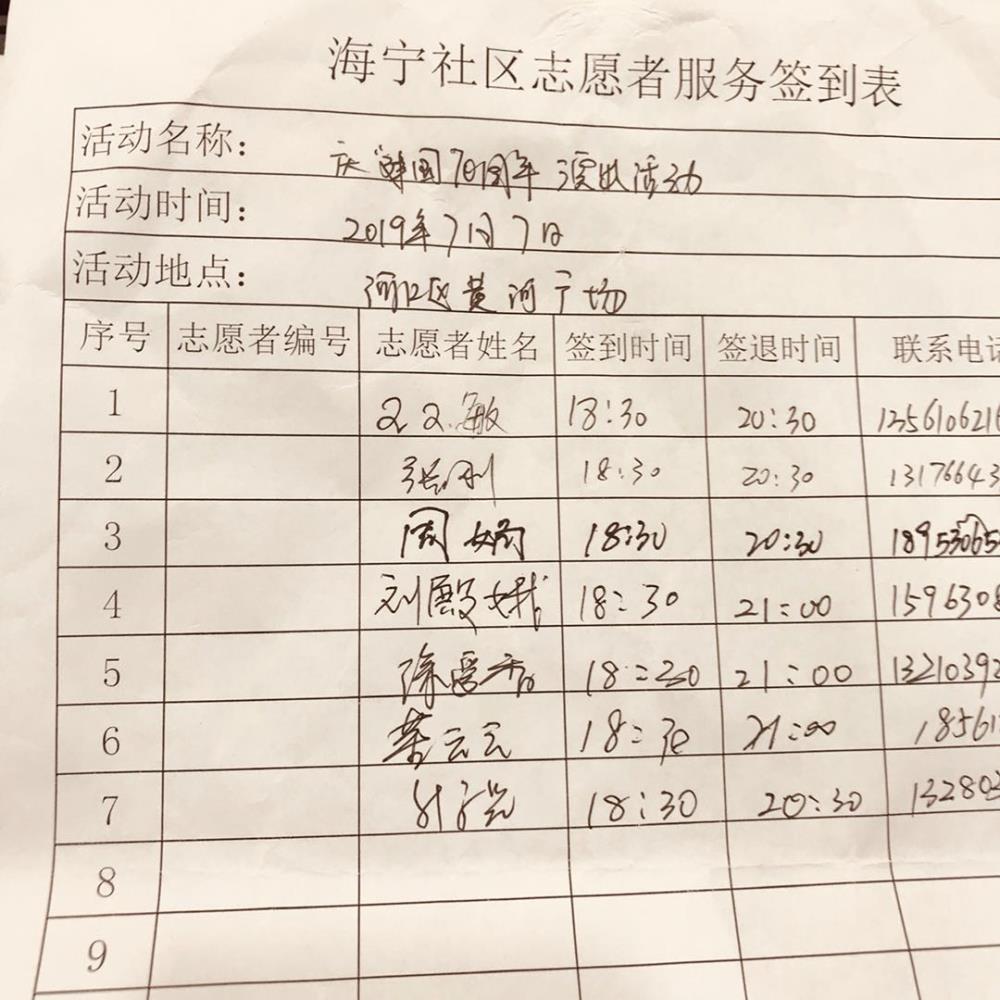 海宁社区志愿者服务签到表
活动名称： 庆"建国70周年 演出活动
活动时间： 2019年7月7日
活动地点： 河口区黄河广场
序号 志愿者编号 志愿者姓名 签到时间 签退时间 联系电话
1 18:30 20:30 1356106216
2 张刚 18:30 20:30 13176643
3 周娟 18:30 20:30 18953065
4 刘殿娥 18:30 21:00 1596308
5 徐爱香 18:30 21:00 13210392
6 18:30 21:00 18561
7 18:30 20:30 132803
8
9